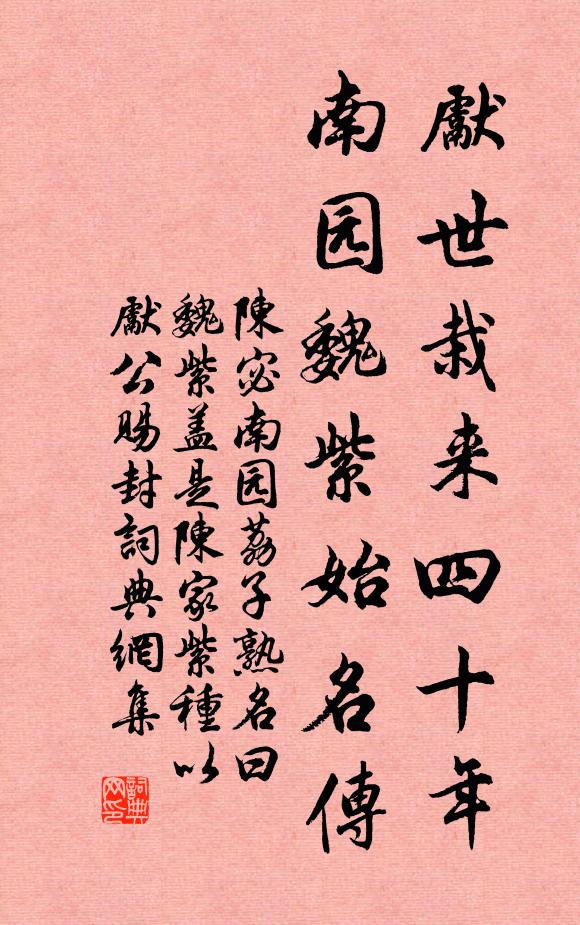 獻世栽来四十年
南园魏紫始名傳
陳宓南园荔子熟名曰
魏紫盖是陳家紫種以
獻公賜封詞典網集
詞典网印